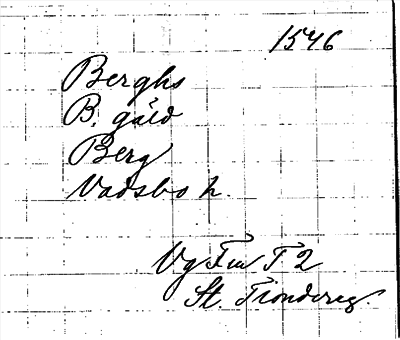 1546
Berghs
B. gäld
Berg
Vadsbo h.
Vg Fru T 2
St. Tiondereg.